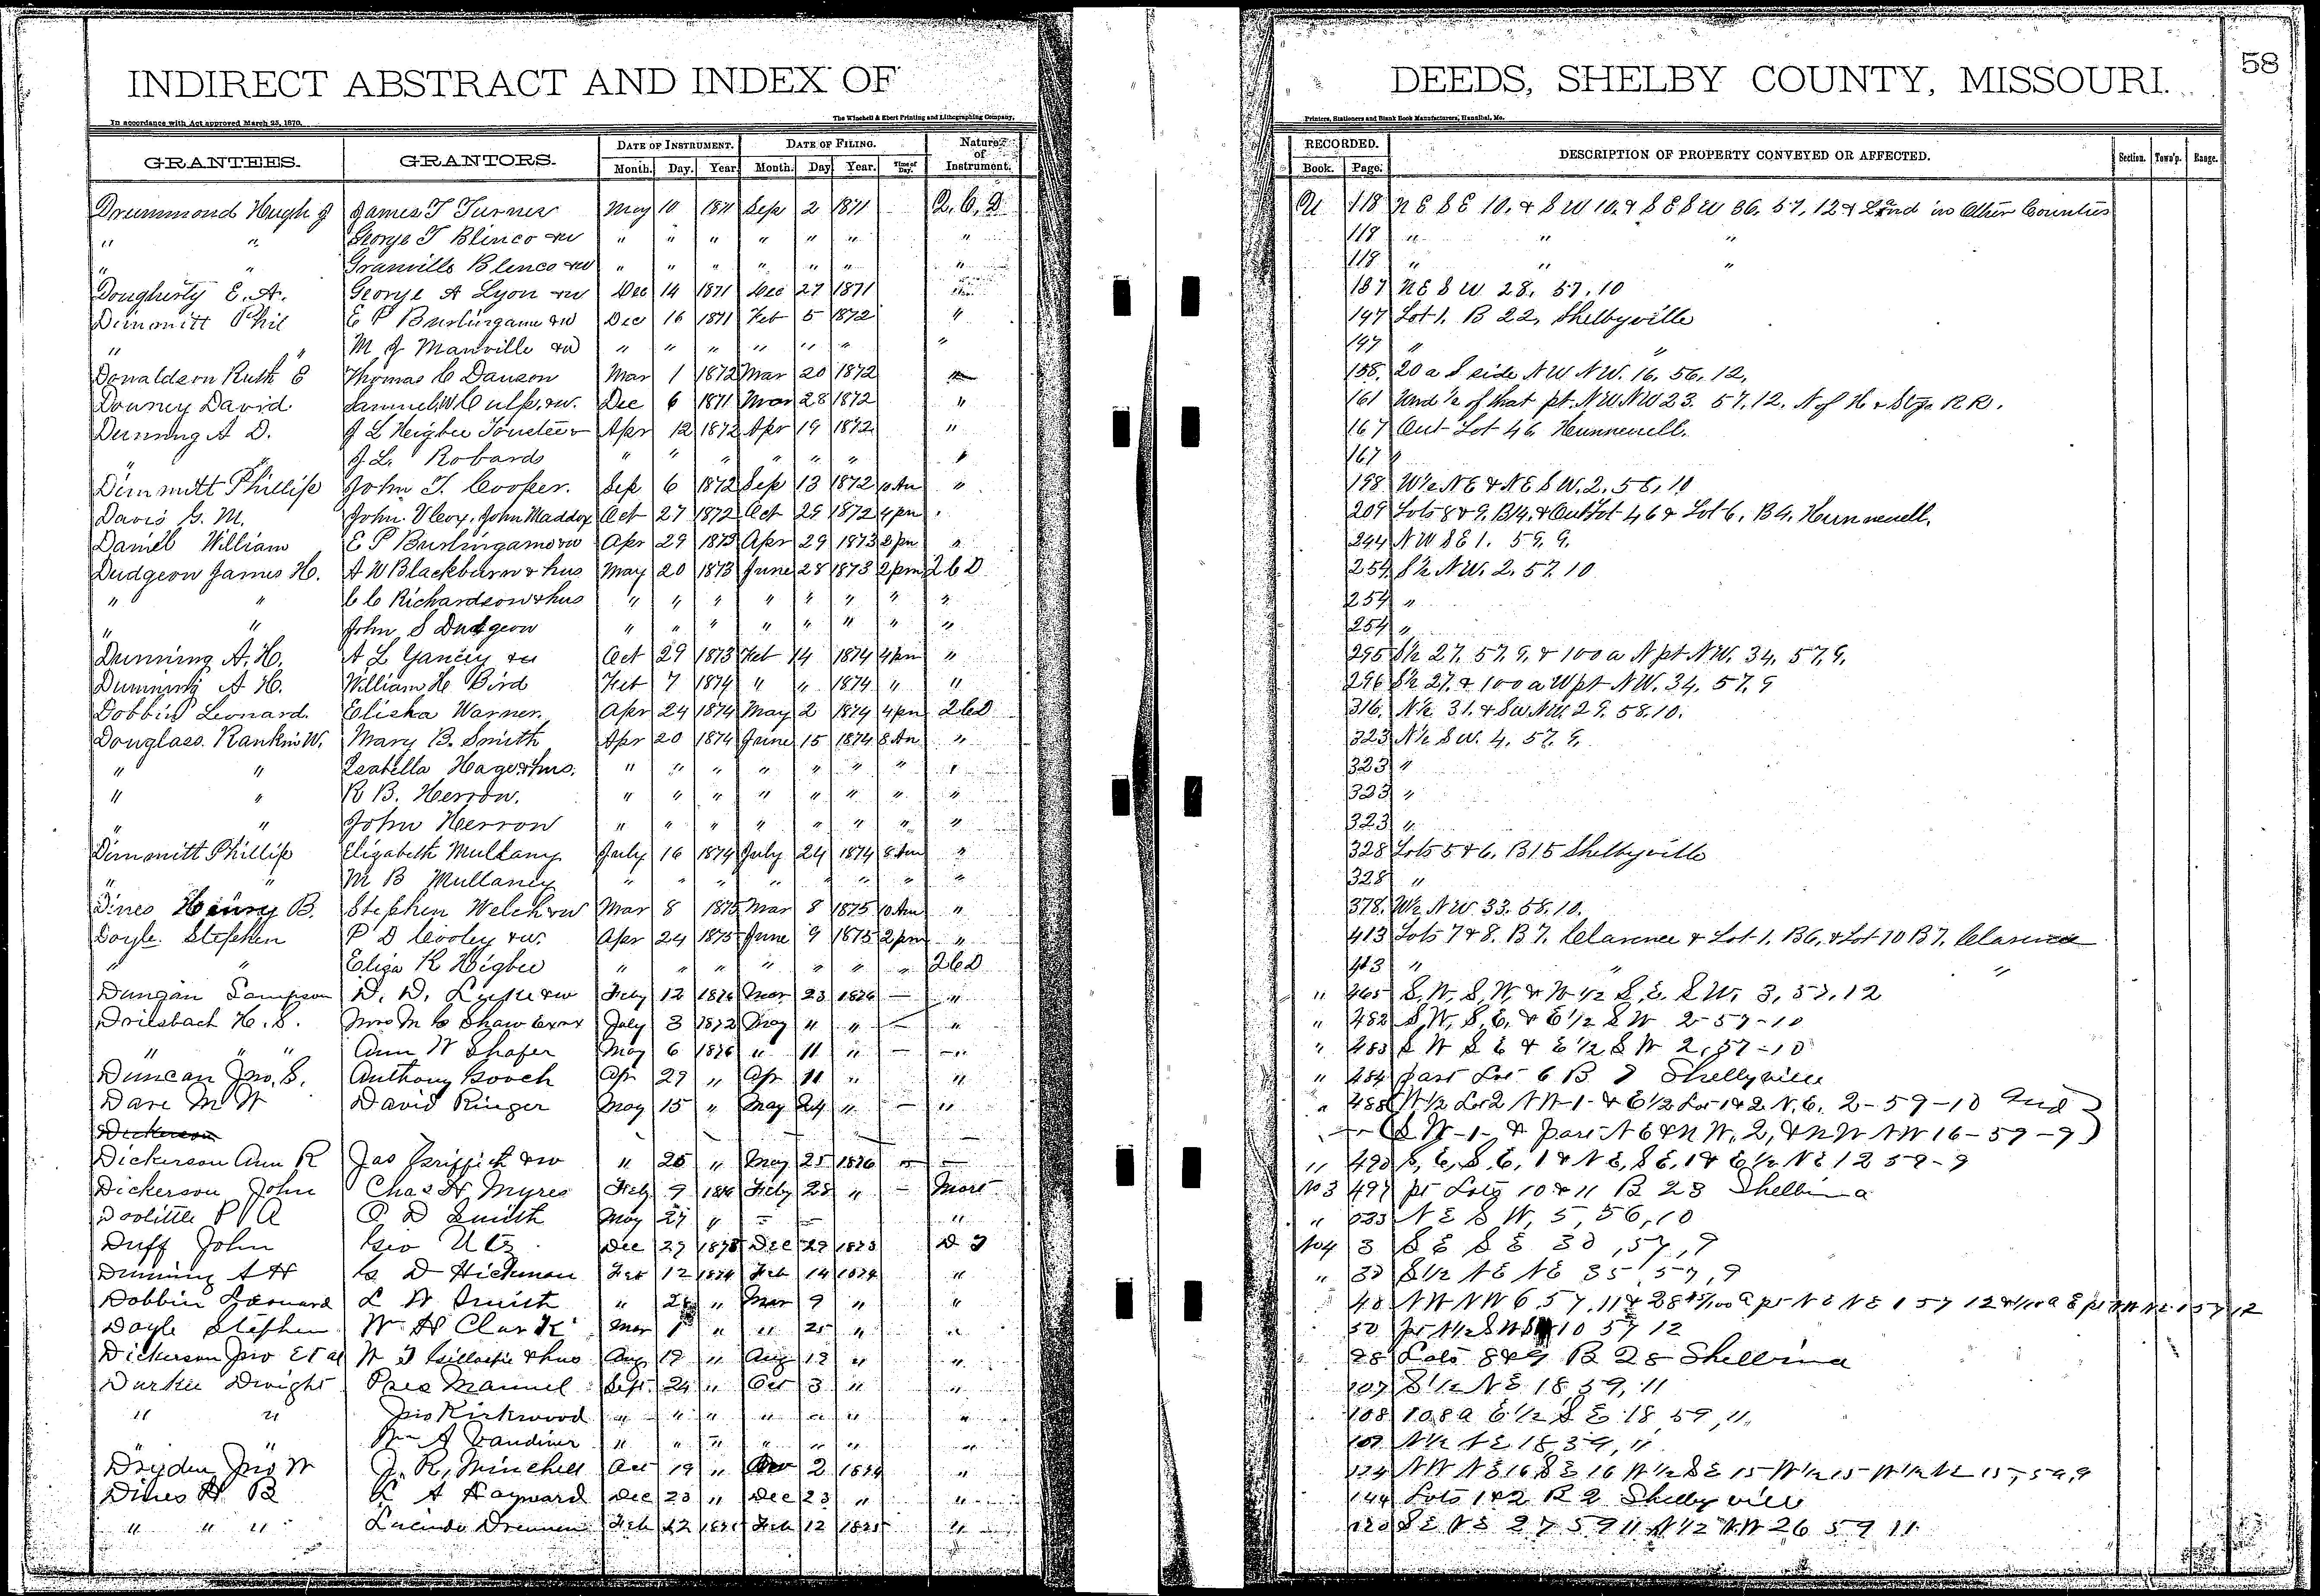 58
INDIRECT ABSTRACT AND INDEX OF DEEDS, SHELBY COUNTY, MISSOURI.
In accordance with Act approved March 25, 1870. The Winchell & Ebert Printing and Lithographing Company, Printers, Stationers and Blank Book Manufacturers, Hannibal, Mo.
GRANTEES. GRANTORS. DATE OF INSTRUMENT. DATE OF FILING. Nature of Instrument. RECORDED. DESCRIPTION OF PROPERTY CONVEYED OR AFFECTED. Section. Town'p. Range.
Month. Day. Year. Month. Day Year. Time of Day. Book. Page.
Drummond Hugh J James T Turner May 10 1871 Sep 2 1871 Q.C.D 118 NE SE 10. & SW 10. & SE SW 36. 57. 12 & Land in Other Counties
" " George T Blinco & w " " " " " " " 118 " " "
" " Granville Blenco & w " " " " " " " 118 " " "
Dougherty E. A. George A Lyon & w Dec 14 1871 Dec 27 1871 137 NE SW 28. 57. 10
Dimmitt Phil E P Burlingame & w Dec 16 1871 Feb 5 1872 " 147 Lot 1. B 22, Shelbyville
" " M J Manville & w " " " " " " " 147 " "
Donaldson Ruth E Thomas C Dawson Mar 1 1872 Mar 20 1872 " 158. 20 a S side NW NW. 16. 56. 12,
Downey David Samuel W Culp. & w. Dec 6 1871 Mar 28 1872 " 161 Und ½ of that pt. NW NW 23. 57. 12. N of H & St Jo RR.
Dunning A D. J L Heigbee Toustee Apr 12 1872 Apr 19 1872 " 167 Out Lot 46 Hunnewell.
" " J. L. Robards " " " " " " " 167 "
Dimmitt Phillip John T. Cooper. Sep 6 1872 Sep 13 1872 10 Am " 198 W½ NE & NE SW. 2. 56. 10
Davis G. M. John Maddox Oct 27 1872 Oct 29 1872 4 pm " 209 Lots 8 & 9. B 14. & Out Lot 46 & Lot 6. B 9. Hunnewell.
Daniel William E P Burlingame & w Apr 29 1873 Apr 29 1873 2 pm " 244 NW SE 1. 59. 9.
Dudgeon James H. A W Blackburn & hus May 20 1873 June 28 1873 2 pm Q C D 254 S½ NW. 2. 57. 10
" " C C Richardson & hus " " " " " " " " 254 "
" " John S Dudgeon " " " " " " " " 254 "
Dunning A. H. A L Yancey & w Oct 29 1873 Feb 14 1874 4 pm " 295 S½ 27. 57. 9. & 100 a N pt NW. 34. 57. 9.
Dunning A H. William H Bird Feb 7 1874 " " 1874 " " 296 S½ 27. & 100 a W pt NW. 34. 57. 9
Dobbin Leonard. Elisha Warner. Apr 24 1874 May 2 1874 4 pm Q C D 316. N½ 31. & SW NW. 29. 58. 10.
Douglass. Rankin W. Mary B. Smith Apr 20 1874 June 15 1874 8 Am " 323 N½ SW. 4. 57. 9.
" " Isabella Hager & hus. " " " " " " " " 323 "
" " R B. Herron. " " " " " " " " 323 "
" " John Herron " " " " " " " " 323 "
Dimmitt Phillip Elizabeth Mullany July 16 1874 July 24 1874 8 Am " 328 Lots 5 & 6. B 15 Shelbyville
" " M B Mullaney " " " " " " " " 328 "
Dines Henry B. Stephen Welch & w Mar 8 1875 Mar 8 1875 10 Am " 378. W½ NW. 33. 58. 10.
Doyle. Stephen P D Cooley & w. Apr 24 1875 June 9 1875 2 pm " 413 Lots 7 & 8. B 7. Clarence & Lot 1. B 6. & Lot 10 B 7. Clarence
" " Eliza R Higbee " " " " " " " Q C D 413 " " "
Dungan Sampson D. D. & w Feby 12 1876 Mar 23 1876 — " " 465 S.W. S.W. & W ½ S.E. SW. 3, 57, 12
Drilsbach H. S. Mrs M C Shaw July 3 1872 May " " — " " 482 S.W. S.E. & E ½ SW 2-57-10
" " " Ann W Shafer May 6 1876 " 11 " — " " 483 SW SE & E ½ SW 2, 57-10
Duncan Jno. S. Anthony Gooch Apr 29 " Apr 11 " " " 484 part Lot 6 B 7 Shelbyville
Dare M W David Ringer May 15 " May 24 " — " " 488 W ½ Lot 2 NW-1- & E ½ Lot 1 & 2 N.E. 2-59-10 And
Dickerson SW-1- & part NE & NW, 2, & NW NW 16-59-9
Dickerson Ann R Jas Griffith & w " 25 " May 25 1876 — — " 490 S, E, S.E, 1 & NE, SE, 1 & E ½ NE 12 59-9
Dickerson John Chas H Myres Feby 9 1876 Feby 28 " — Mort No 3 497 pt Lots 10 & 11 B 23 Shelbina
Doolittle P A O D Smith May 27 " " " NE SW, 5, 56, 10
Duff John Geo Utz Dec 27 1873 Dec 29 1873 D T No 4 3 SE SE 30, 57, 9
Dunning A H C D Hickman Feb 12 1874 Feb 14 1874 " " 30 S ½ NE NE 35, 57, 9
Dobbin Leonard L W Smith " " Mar 9 " " 40 NW NW 6 57. 11 &
Doyle Stephen W H Clark Mar 1 " " 25 " " 50 pt N ½ 10 57 12
Dickerson Jno Et al W T Gillaspie & hus Aug 19 " Aug 19 " " 98 Lots 8 & 9 B 25 Shelbina
Durkee Dwight Pres Manuel Sept. 24 " Oct 3 " " 107 S ½ NE 18 59, 11
" " Jno Kirkwood " " " " " " " 108 108 a E ½ SE 18, 59, 11
" " Wm A Vandiver " " " " " " " 109 N ½ NE 18, 59, 11
Dryden Jno W J. R. Minchell Oct 19 " 2 1874 " 124 NW NE 16 SE 16 W ½ SE 15 W ½ 15 W ½ NE 15, 59, 9
Dines H B L A Hayward Dec 23 " Dec 23 " " 144 Lots 1 & 2 B 2 Shelbyville
" " " Lucinda Drennen Feb 12 1875 Feb 12 1875 " SE NE 27 59 11 N ½ NW 26 59 11